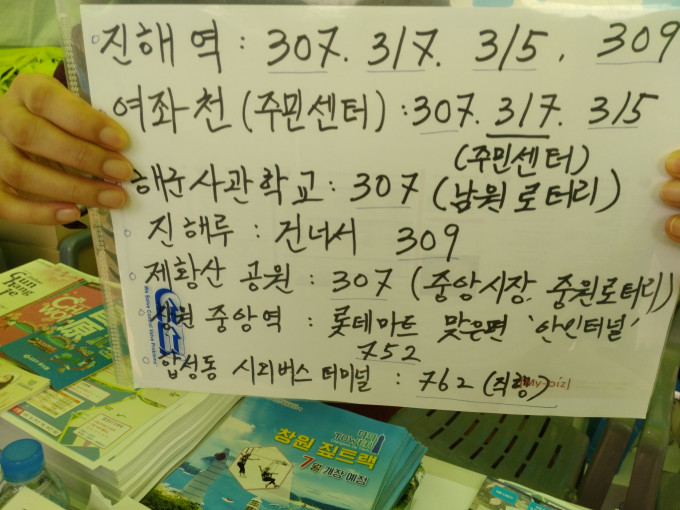 진해역 : 307. 317. 315. 309
여좌천 (주민센터) : 307. 317. 315
(주민센터)
해군사관학교 : 307 (남원로터리)
진해루 : 건너서 309
제황산 공원 : 307 (중앙시장. 중원로터리)
창원 중앙역 : 롯데마트 맞은편 '안민터널'
752
합성동 시외버스 터미널 : 762 (직행)
My-biz
창원 짚트랙
7월 개장 예정